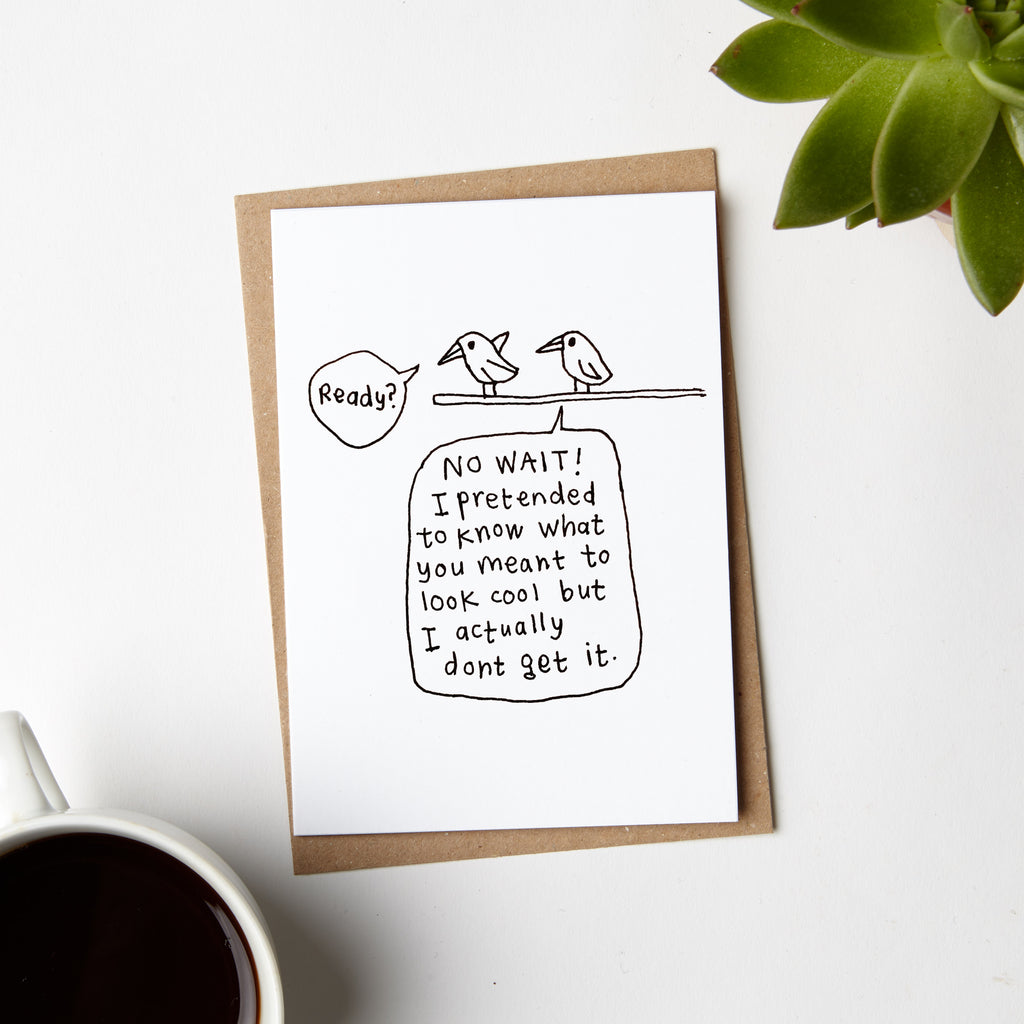 Ready?
NO WAIT!
I pretended
to know what
you meant to
look cool but
I actually
dont get it.